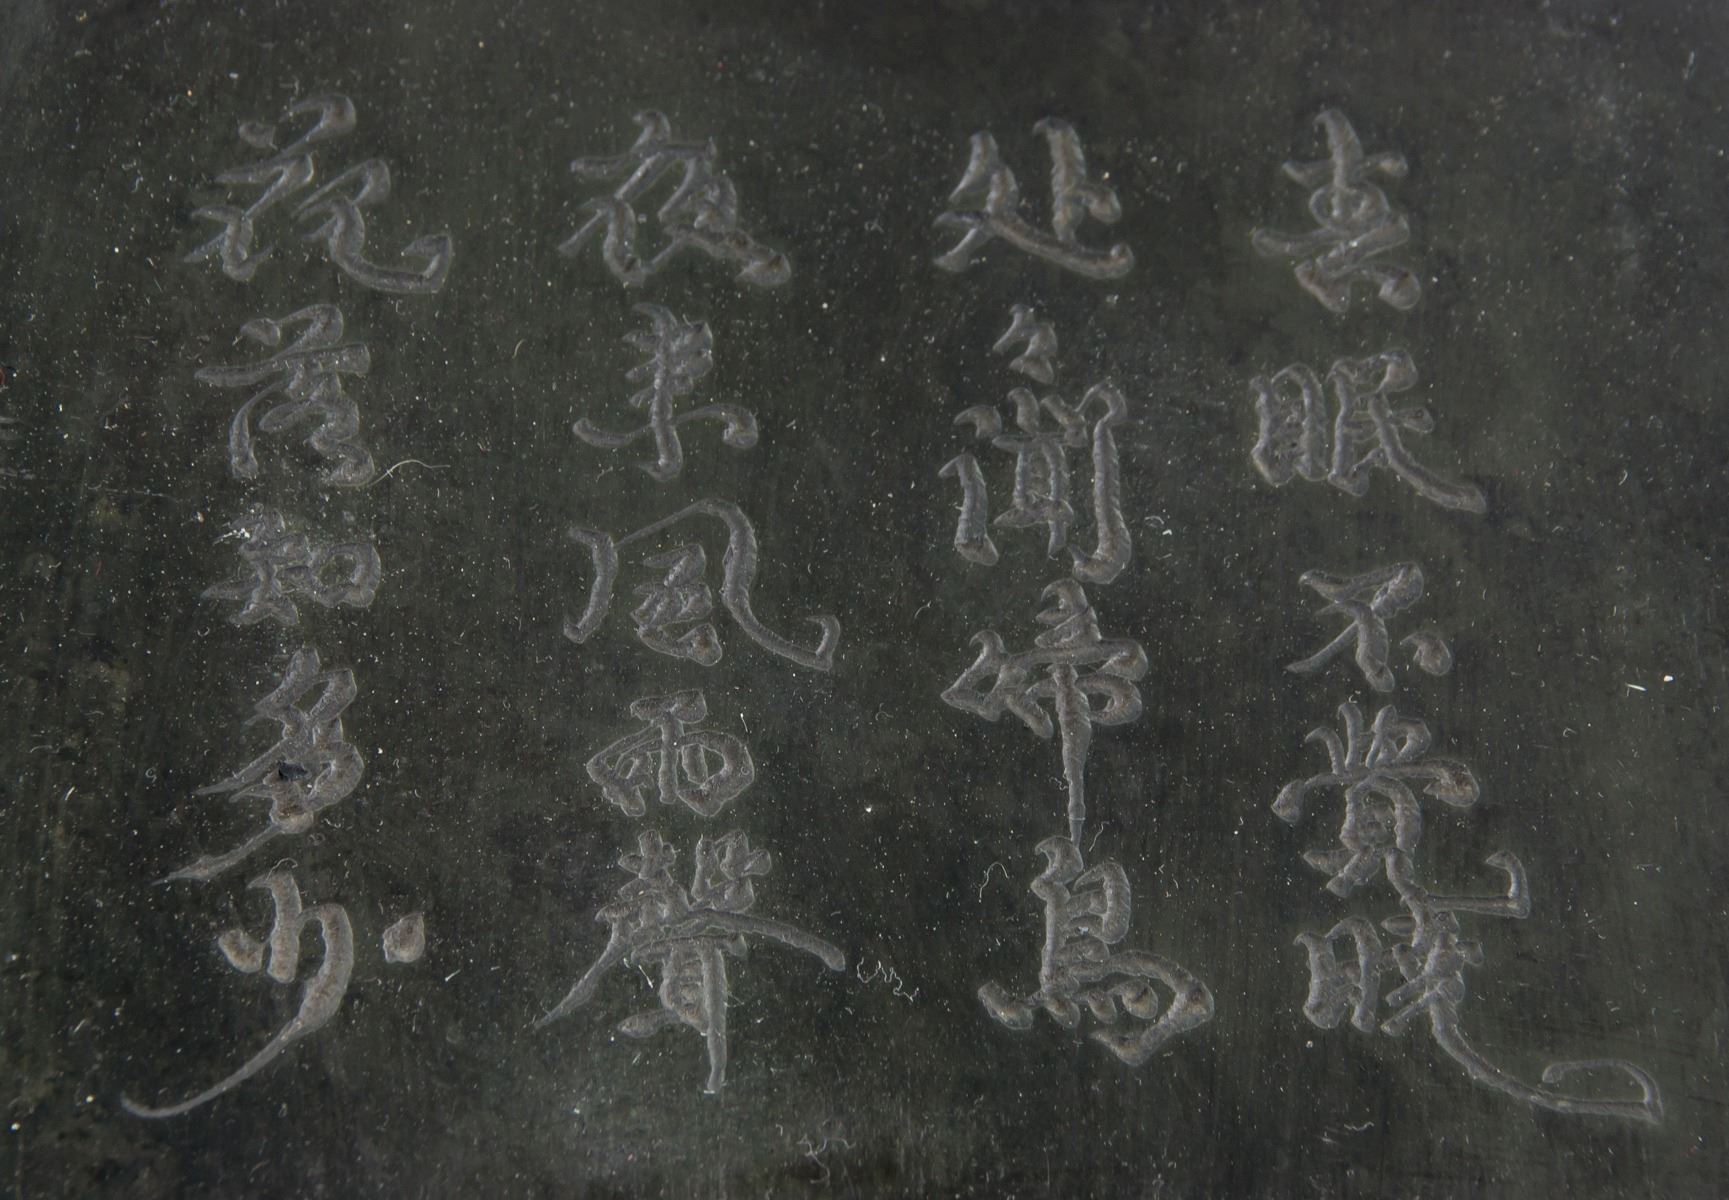 春眠不覺曉
处々聞啼鳥
夜来風雨聲
花落知多少